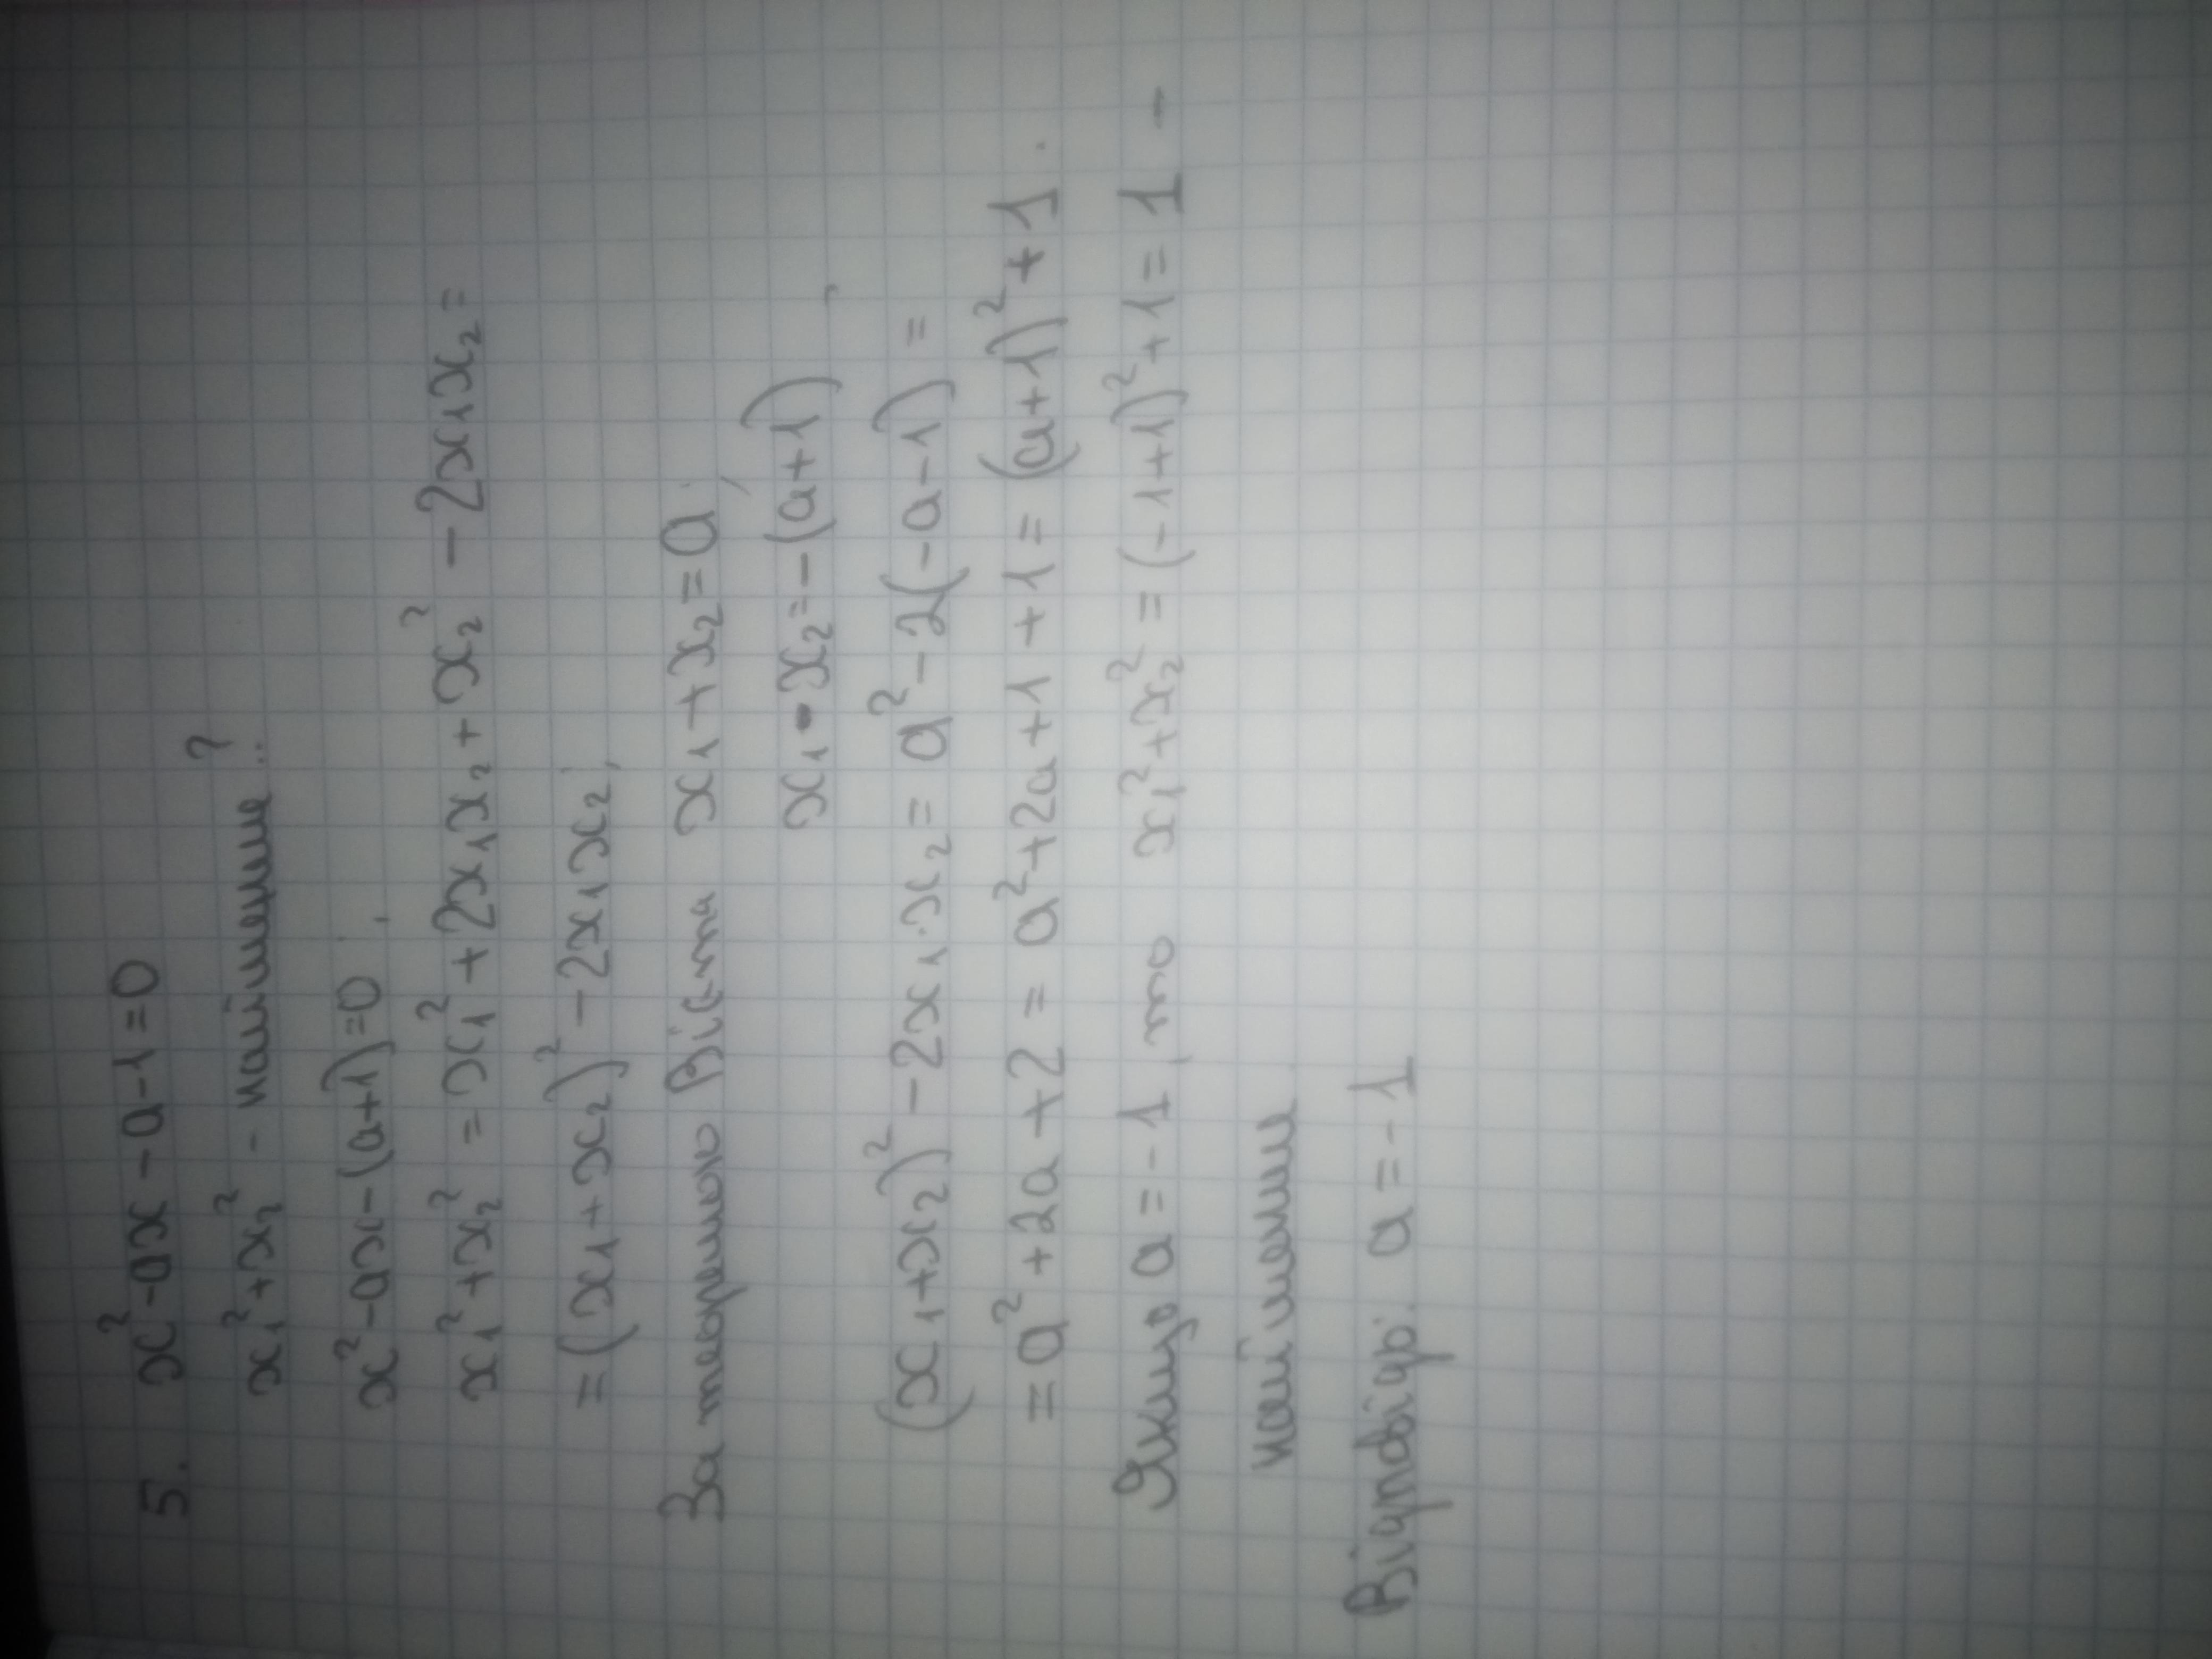 5. x² - ax - a - 1 = 0
x₁² + x₂² - найменше?
x² - ax - (a+1) = 0;
x₁² + x₂² = x₁² + 2x₁x₂ + x₂² - 2x₁x₂ =
= (x₁ + x₂)² - 2x₁x₂;
За теоремою Вієта x₁ + x₂ = a;
x₁ • x₂ = -(a+1),
(x₁+x₂)² - 2x₁·x₂ = a² - 2(-a-1) =
= a² + 2a + 2 = a² + 2a + 1 + 1 = (a+1)² + 1.
Якщо a = -1, то x₁² + x₂² = (-1+1)² + 1 = 1 -
найменше
Відповідь: a = -1